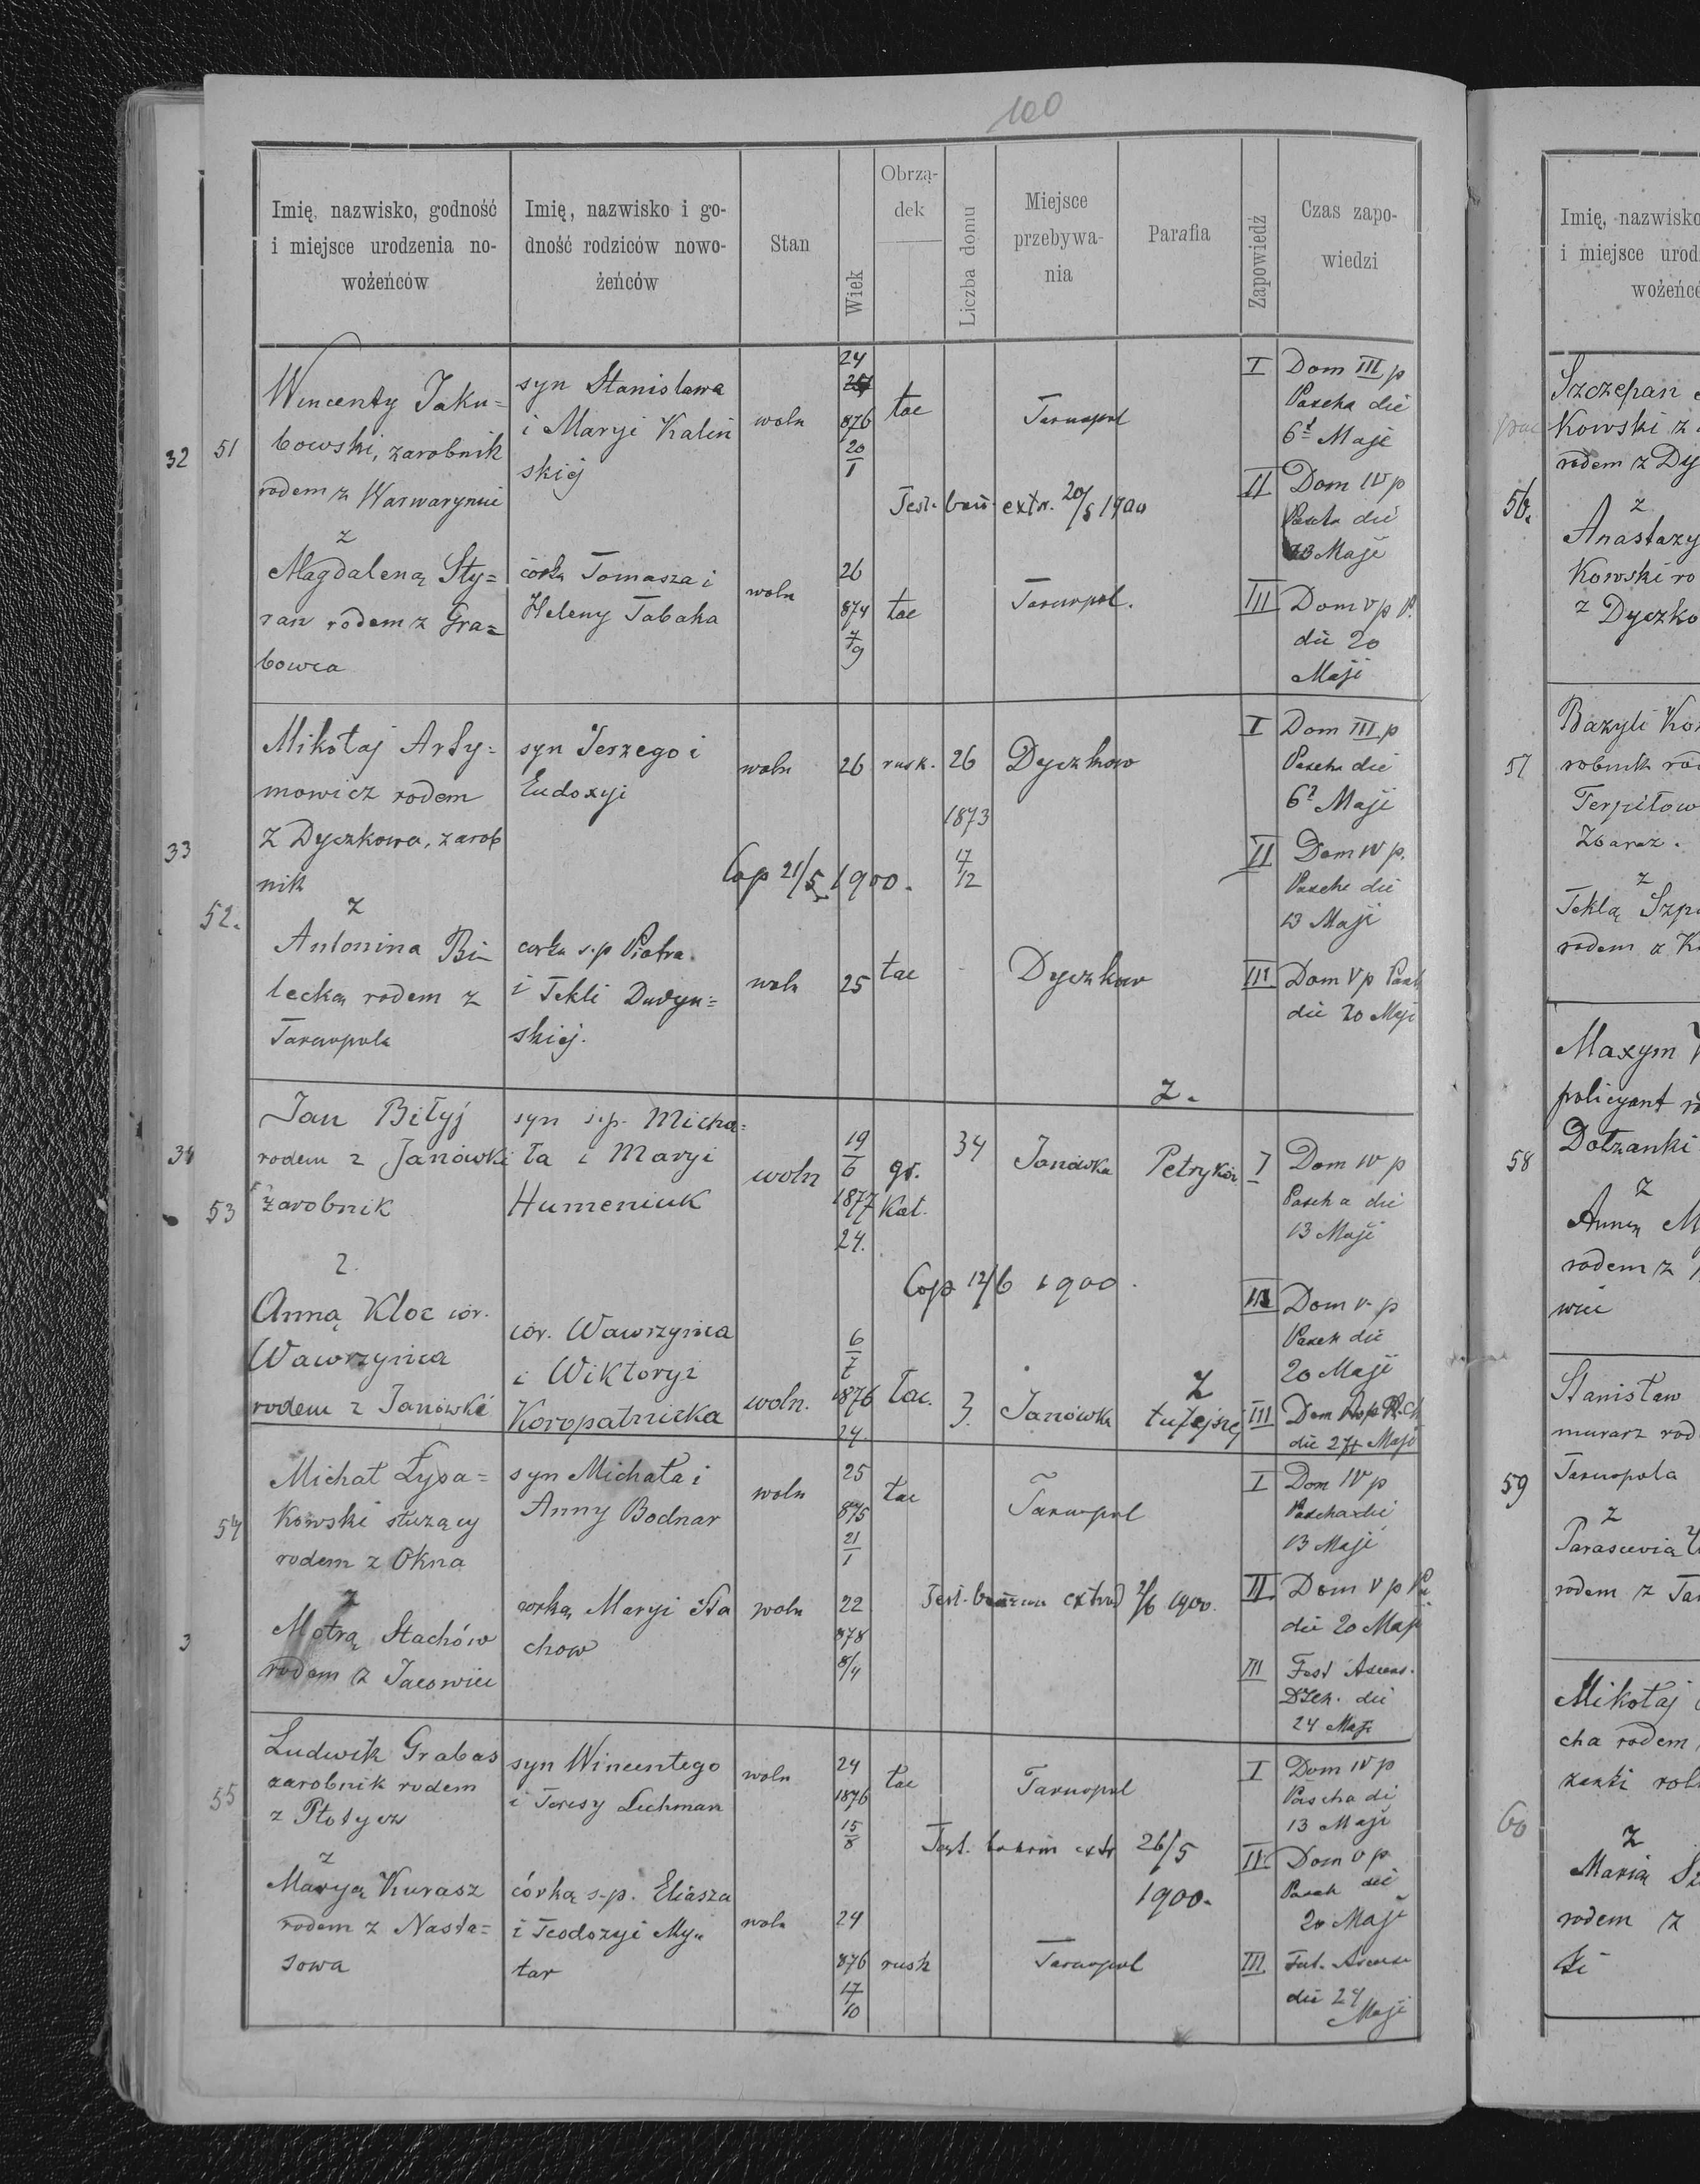 100
Imię, nazwisko, godność
i miejsce urodzenia no-
wożeńców
Imię, nazwisko i go-
dność rodziców nowo-
żeńców
Stan
Wiek
Obrzą-
dek
Liczba domu
Miejsce
przebywa-
nia
Parafia
Zapowiedź
Czas zapo-
wiedzi
32
51
Wincenty Jaku=
bowski, zarobnik
rodem z Warwaryniec
z
Magdaleną Sty=
ran rodem z Gra=
bowca
syn Stanisława
i Maryi Kaliń
skiej
córka Tomasza i
Heleny Tabaka
woln
woln
24
876
20
1
26
874
7
9
łac
łac
Tarnopol
Test. bann. extr. 20/5 1900
Tarnopol.
I Dom III p
Pascha die
6 Maji
II Dom IV p
Pascha die
13 Maji
III Dom V p P.
die 20
Maji
33
52.
Mikołaj Arty=
mowicz rodem
z Dyczkowa, zarob
nik
z
Antonina Bi-
lecką rodem z
Tarnopola
syn Jerzego i
Eudoxyi
corka s.p Piotra
i Tekli Dudyn=
skiej.
woln
woln
26
25
rusk.
łac
26
1873
17
12
Dyczkow
Cop 21/5 1900.
Dyczkow
I Dom III p
Pascha die
6 Maji
II Dom IV p.
Pascha die
13 Maji
III Dom V p Pasch
die 20 Maji
34
53
Jan Biłyj
rodem z Janówki
zarobnik
z.
Anną Kloc cór.
Wawrzyńca
rodem z Janówki
syn s.p. Micha=
ła i Maryi
Humeniuk
cór. Wawrzyńca
i Wiktoryi
Koropatnicka
woln
woln.
19
6
1877
24.
6
7
1876
24.
gr.
Kat.
łac.
34
3.
Janówka
Janówka
z.
Petryków
Cop 12/6 1900.
z
tutejszej
I Dom IV p
Pascha die
13 Maji
II Dom V p
Pasch die
20 Maji
III Dom
die 27 Maji
3
54
Michał Łysa=
kowski służący
rodem z Okna
z
Motrą Stachów
rodem z Jacowiec
syn Michała i
Anny Bodnar
corką Maryi Sta
chow
woln
woln
25
875
21
1
22
878
8/4
łac
Tarnopol
Test. extrad 2/6 1900.
I Dom IV p
Pascha die
13 Maji
II Dom V p
die 20 Maji
III Fest Ascens.
die
24 Maji
55
Ludwik Grabas
zarobnik rodem
z Płotycz
z
Maryą Kurasz
rodem z Nasta=
sowa
syn Wincentego
i Teresy Lechman
córką s.p. Eliasza
i Teodozyi My=
tar
woln
woln
24
1876
15
8
24
876
17
10
łac
rusk
Tarnopol
Test. bannor extr 26/5
1900.
Tarnopol
I Dom IV p
Pascha di
13 Maji
II Dom V p
Pasch die
20 Maji
III Fest. Ascens
die 24
Maji
Imię, nazwisko
i miejsce urod
wożeńc
56.
Szczepan
Kowski z
rodem z Dy
z
Anastazy
Kowski ro
z Dyczko
57
Bazyli Ko
robnik rod
Terpiłow
Zbaraz.
z
Teklą Szp
rodem z K
58
Maxym
policyant r
Dołzanki
z
Anną M
rodem z
wiec
59
Stanisław
murarz rod
Tarnopola
z
Parascevią
rodem z Tar
60
Mikołaj
cha rodem
z
Marią Sz
rodem z